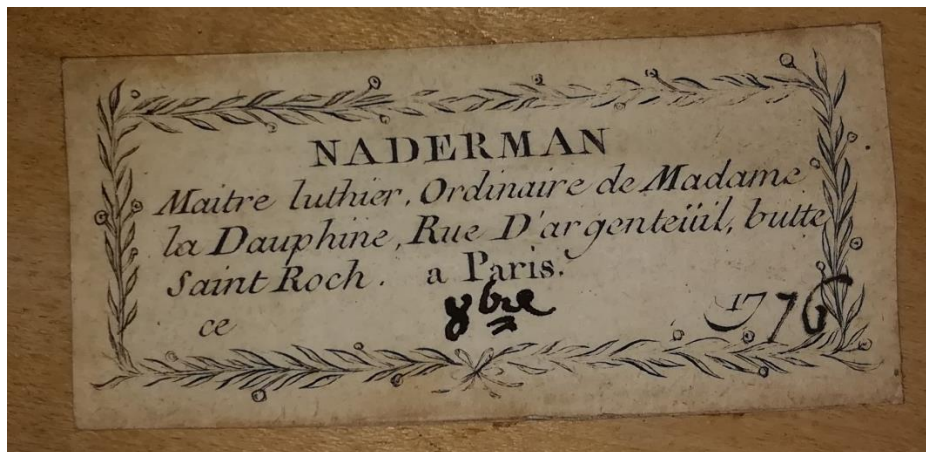 NADERMAN
Maitre luthier, Ordinaire de Madame
la Dauphine, Rue D'argenteüil, butte
Saint Roch. a Paris.
ce 8bre 1776